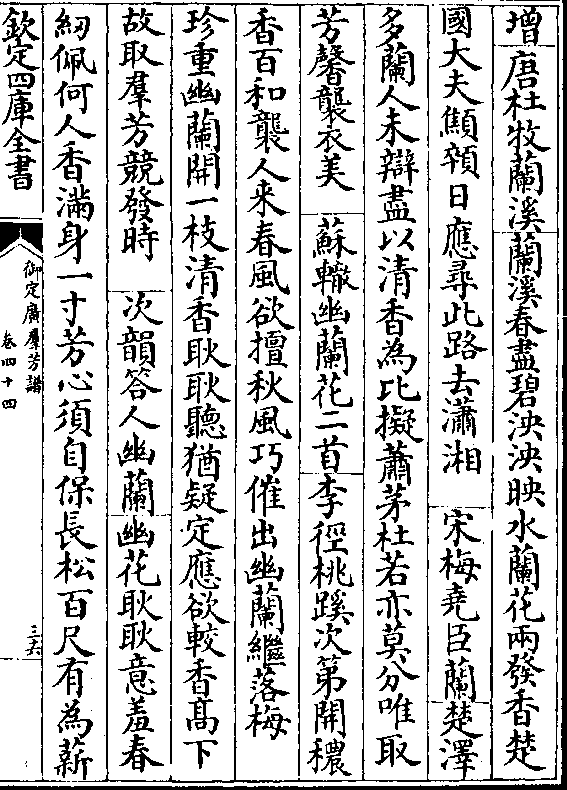 增　唐杜牧蘭溪　蘭溪春盡碧泱泱映水蘭花兩發香楚
國大夫顦顇日應尋此路去瀟湘　宋梅堯臣蘭　楚澤
多蘭人未辯盡以清香為比擬蕭茅杜若亦莫分唯取
芳馨襲衣美　蘇轍幽蘭花二首　李徑桃蹊次第開穠
香百和襲人来春風欲擅秋風巧催出幽蘭繼落梅
珍重幽蘭開一枝清香耿耿聽猶疑定應欲較香髙下
故取羣芳競發時　次韻答人幽蘭　幽花耿耿意羞春
紉佩何人香滿身一寸芳心須自保長松百尺有為薪
欽定四庫全書
御定廣羣芳譜
卷四十四
三六